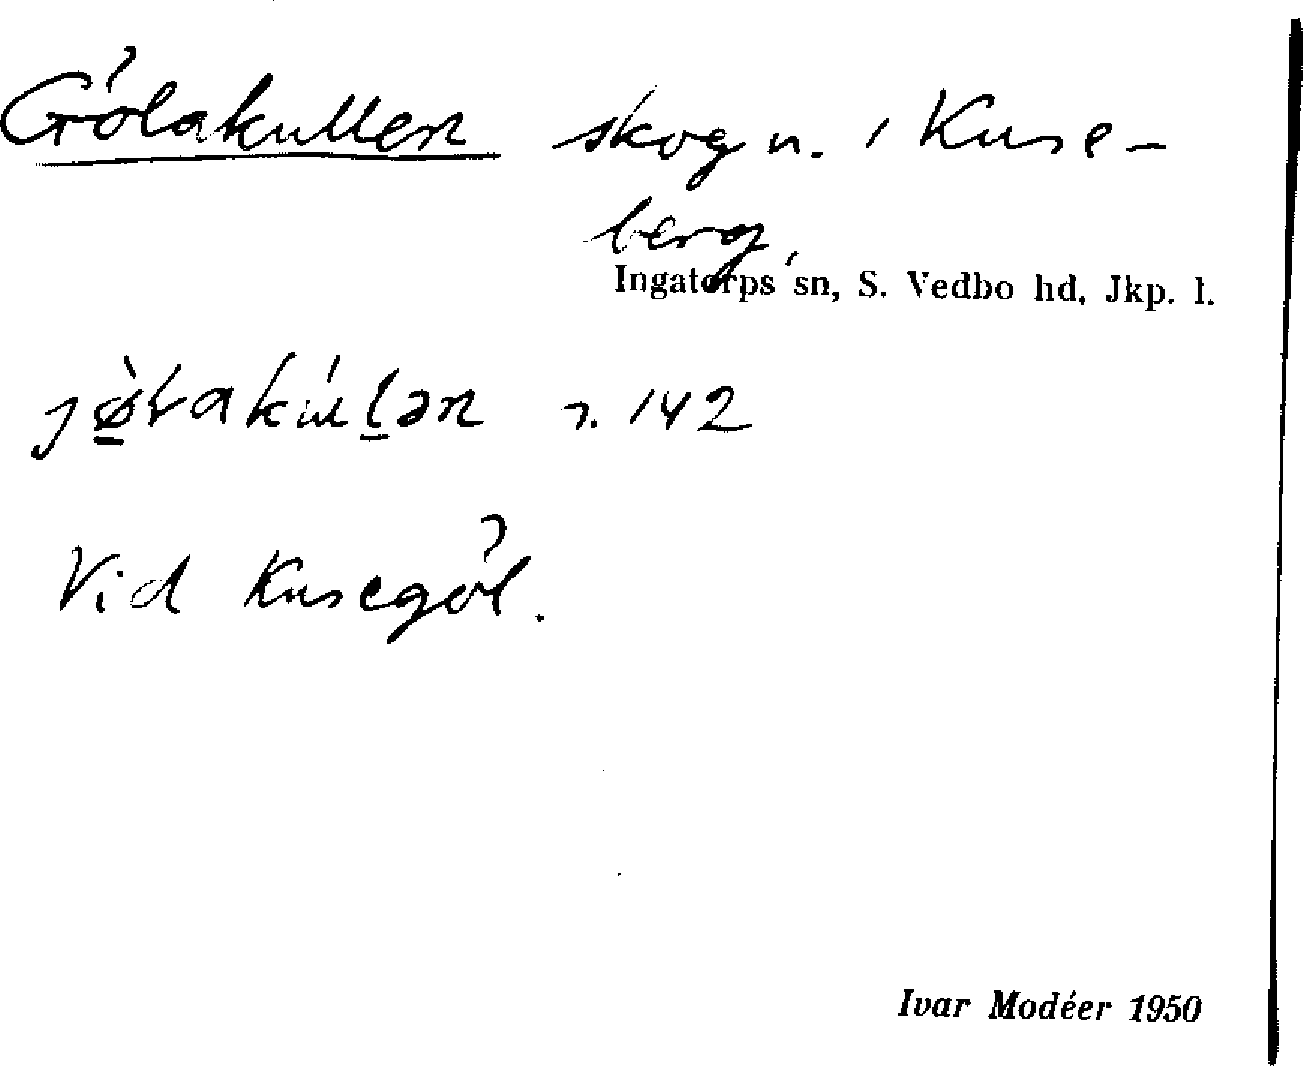 Gölakullen skogn. i Kuse-
berg,
Ingatorps sn, S. Vedbo hd, Jkp. l.
r. 142
Vid Kusegöl.
Ivar Modéer 1950